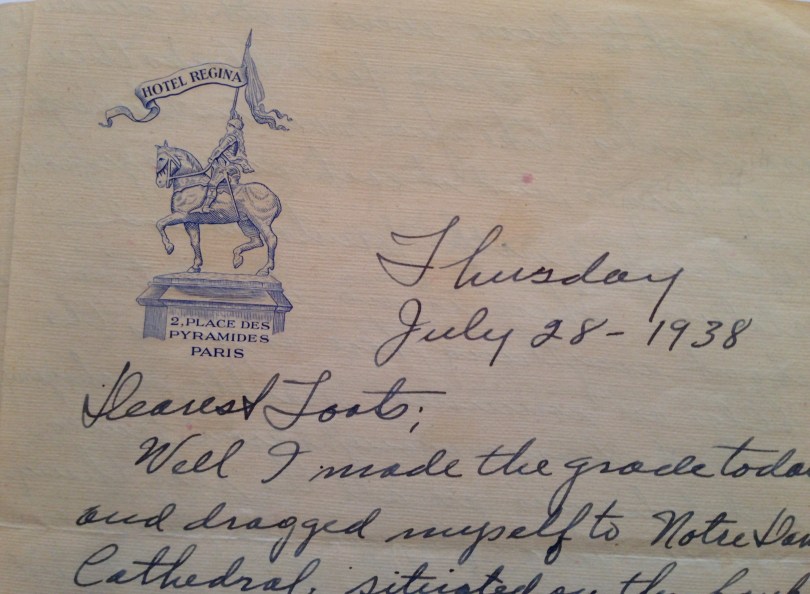 HOTEL REGINA
2, PLACE DES
PYRAMIDES
PARIS
Thursday
July 28 - 1938
Dearest Toots;
Well I made the grade toda
and dragged myself to Notre Dam
Cathedral, situated on the bank